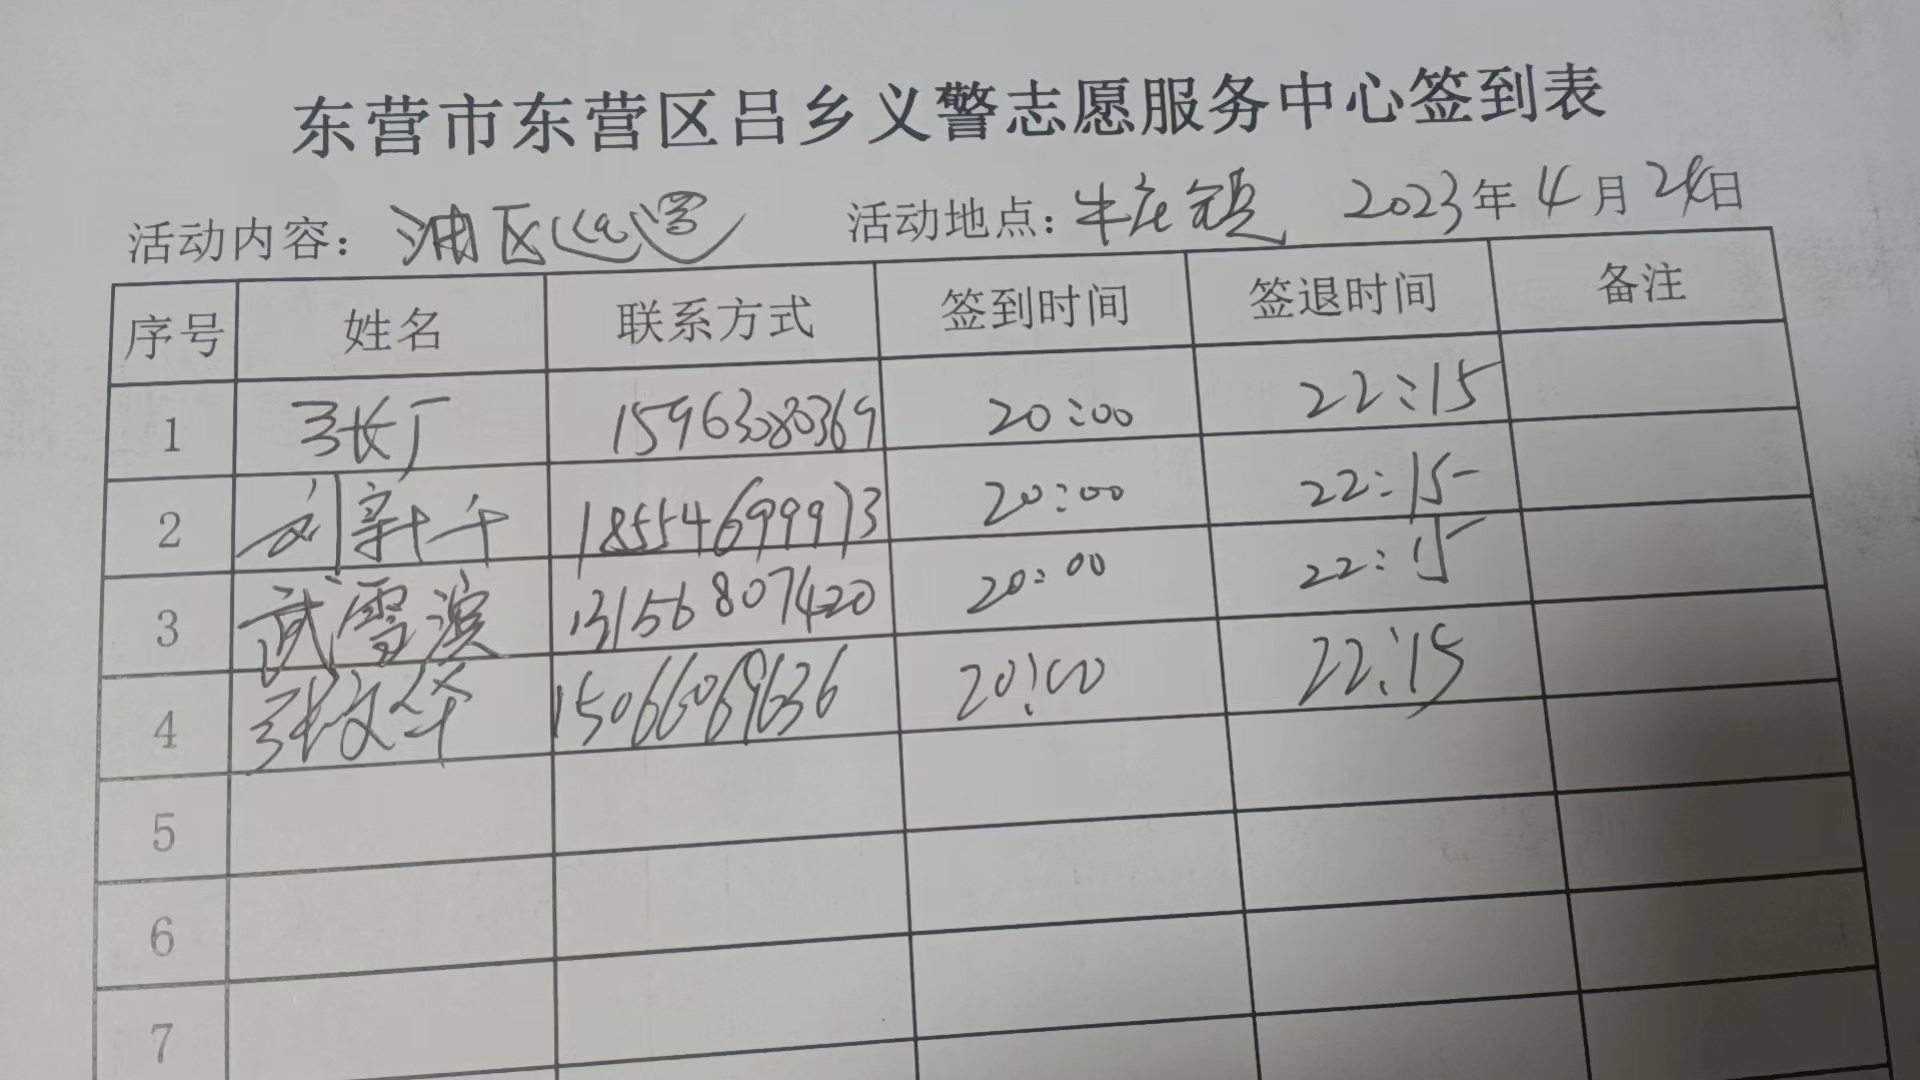 东营市东营区吕乡义警志愿服务中心签到表
活动内容： 活动地点：牛庄镇 2023年4月24日
序号 姓名 联系方式 签到时间 签退时间 备注
1 15963080369 20:00 22:15
2 18554699973 20:00 22:15
3 武雪滨 13156807420 20:00 22:15
4 张文华 15066069636 20:00 22:15
5
6
7